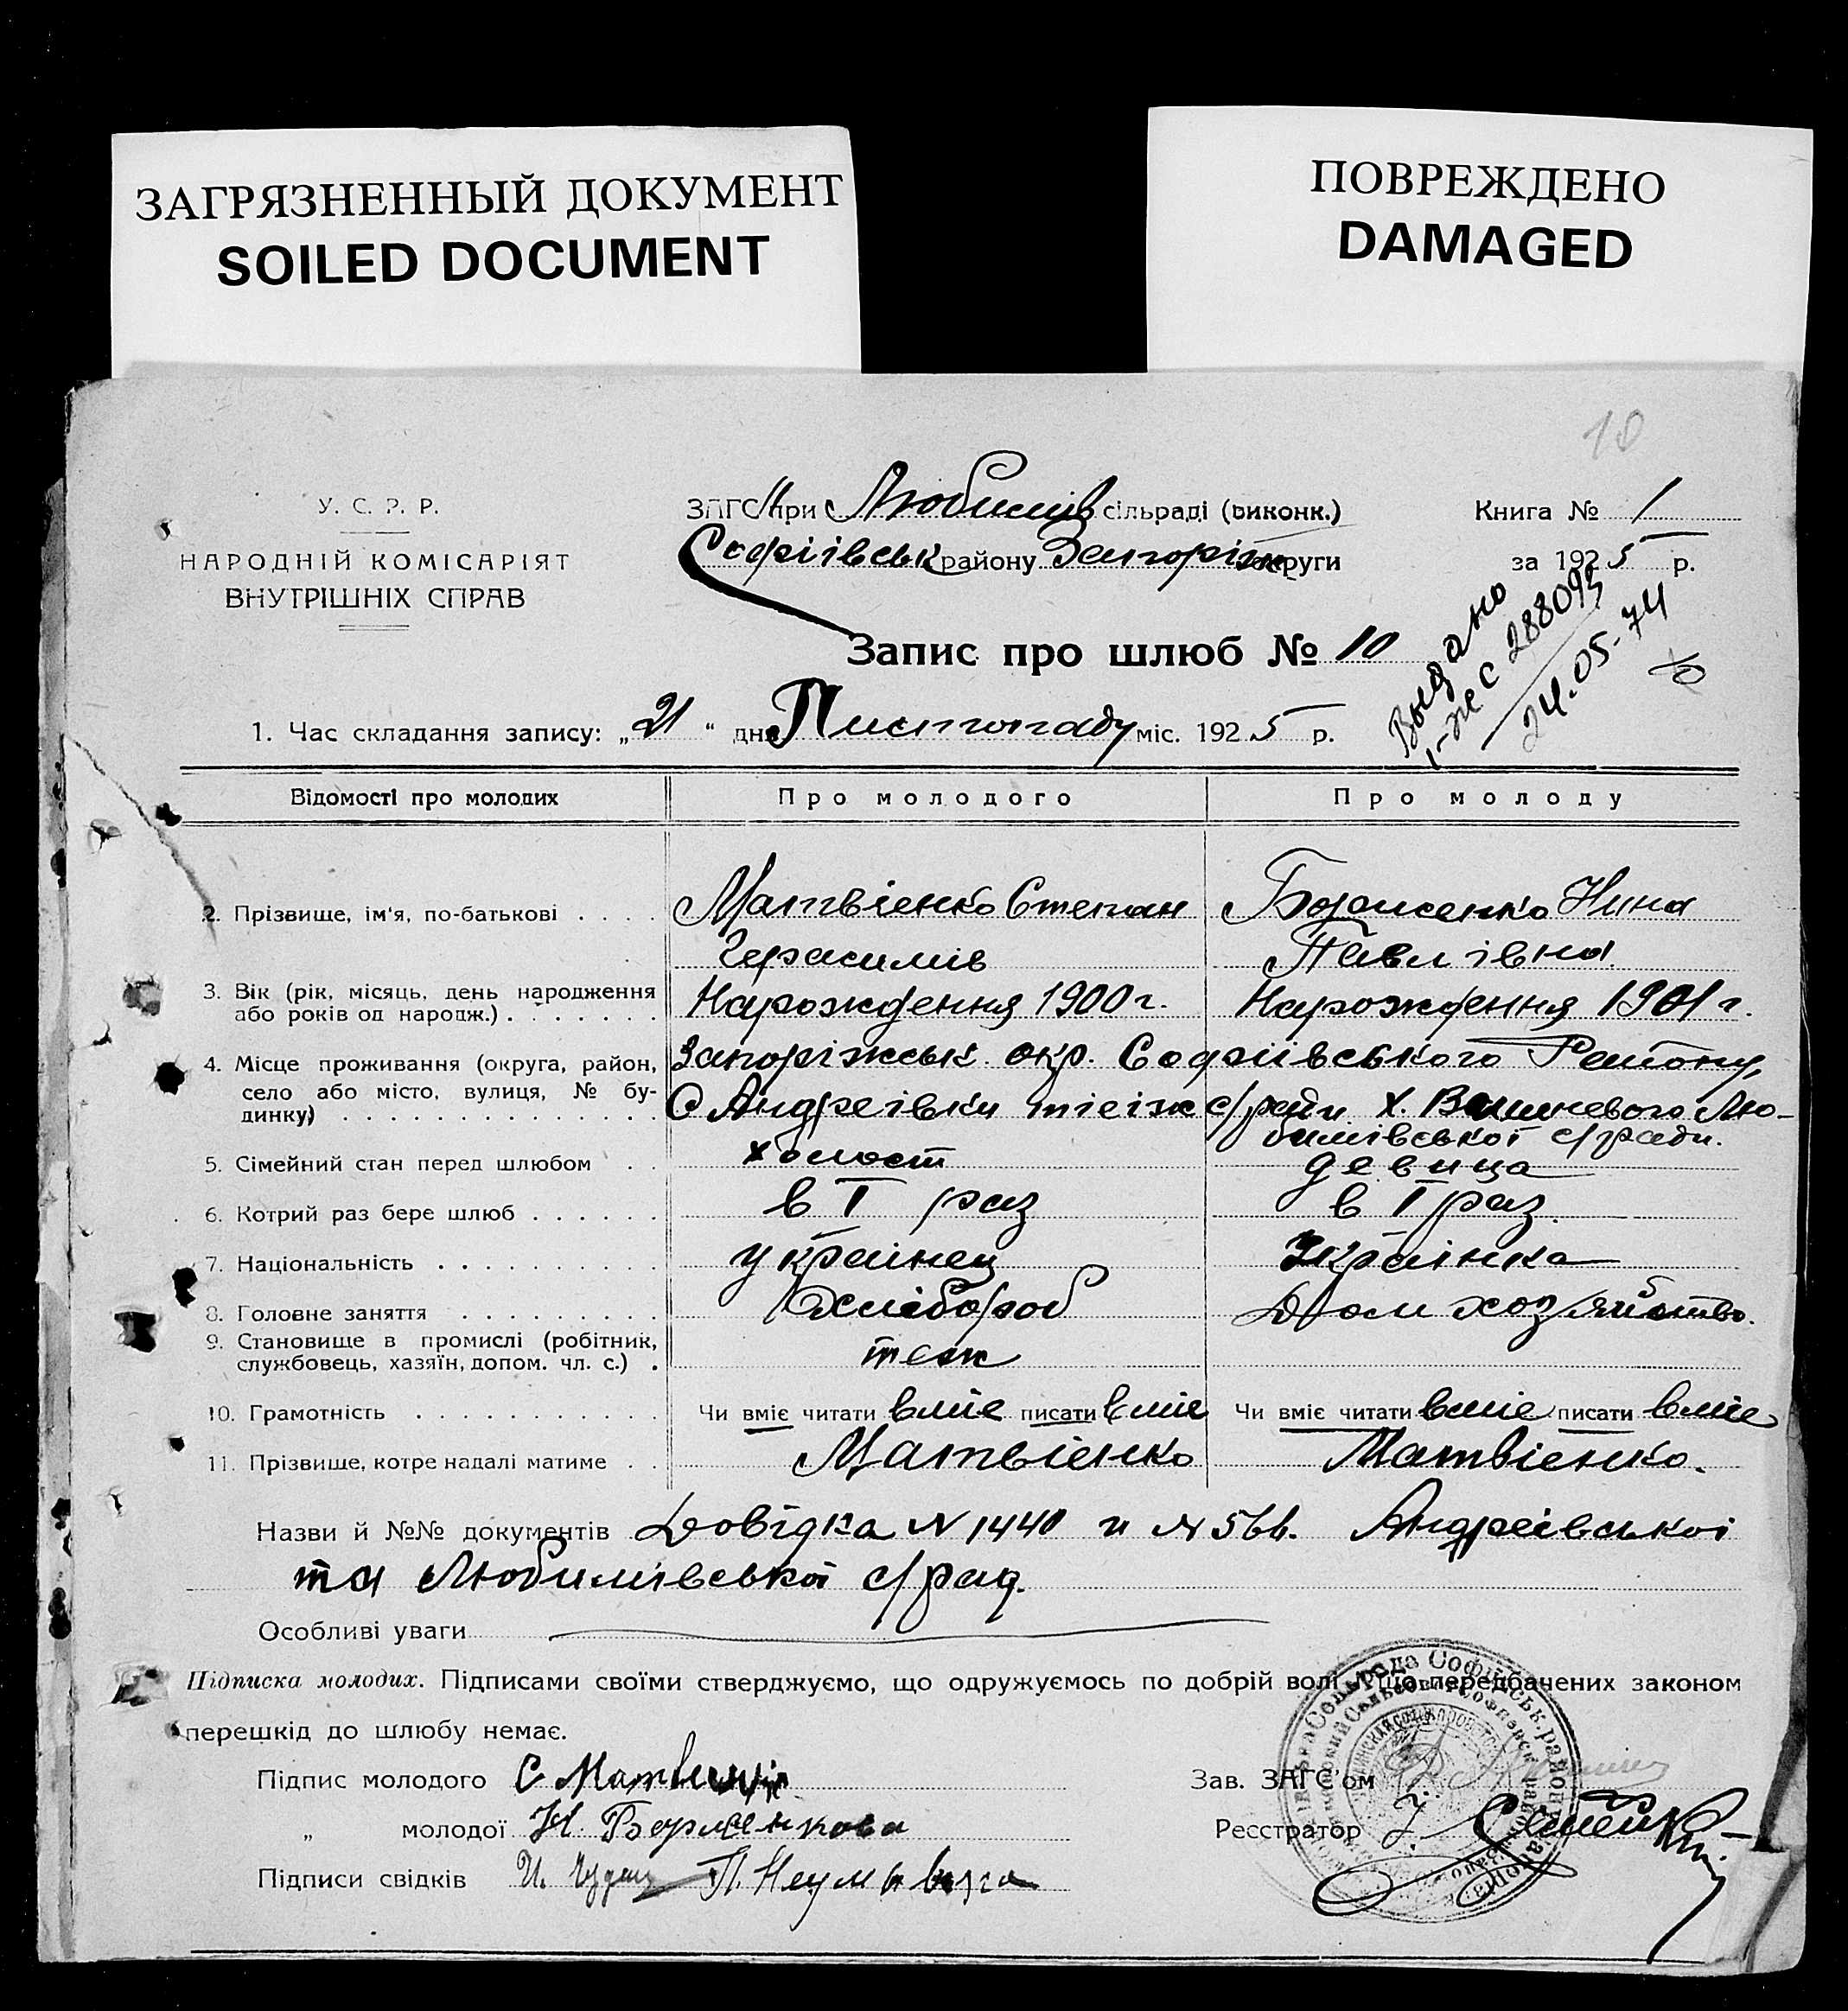 ЗАГРЯЗНЕННЫЙ ДОКУМЕНТ
SOILED DOCUMENT
ПОВРЕЖДЕНО
DAMAGED
10
У. С. Р. Р.
НАРОДНІЙ КОМІСАРІЯТ
ВНУТРІШНІХ СПРАВ
ЗАГС при Любимів сільраді (виконк.)
Софіївськ району Запоріж округи
Книга № 1
за 1925 р.
Запис про шлюб № 10
Выдано
1-жс 288093
24.05-74
1. Час складання запису: „21“ дня Листопаду міс. 1925 р.
Відомості про молодих Про молодого Про молоду
2. Прізвище, ім'я, по-батькові . . . . Матвієнко Степан Нина
Герасимів Павлівна
3. Вік (рік, місяць, день народження або років од народж.) . . . . . . . Нарождення 1900 г. Нарождення 1901 г.
4. Місце проживання (округа, район, Запоріжськ. окр. Софіївського Району,
село або місто, вулиця, № бу- С Андреівки тієїж с/ради х. Вишневого Лю-
динку) . . . . . . . . . . . . . . бимівської с/ради.
5. Сімейний стан перед шлюбом . . холост девица
6. Котрий раз бере шлюб . . . . . . в I раз в I раз.
7. Національність . . . . . . . . . . украінец Украінка
8. Головне заняття . . . . . . . . . Хлібороб Дом хозяйство.
9. Становище в промислі (робітник,
службовець, хазяїн, допом. чл. с.) . теж
10. Грамотність . . . . . . . . . . . Чи вміє читати вміє писати вміє Чи вміє читати вміє писати вміє
11. Прізвище, котре надалі матиме . . Матвієнко Матвієнко.
Назви й №№ документів Довідка N 1440 и N 566. Андреівської
та Любимівської с/рад.
Особливі уваги
Підписка молодих. Підписами своїми стверджуємо, що одружуємось по добрій волі і що передбачених законом
перешкід до шлюбу немає.
Підпис молодого С
Зав. ЗАГС'ом
„ молодої Н.
Реєстратор
Підписи свідків И.